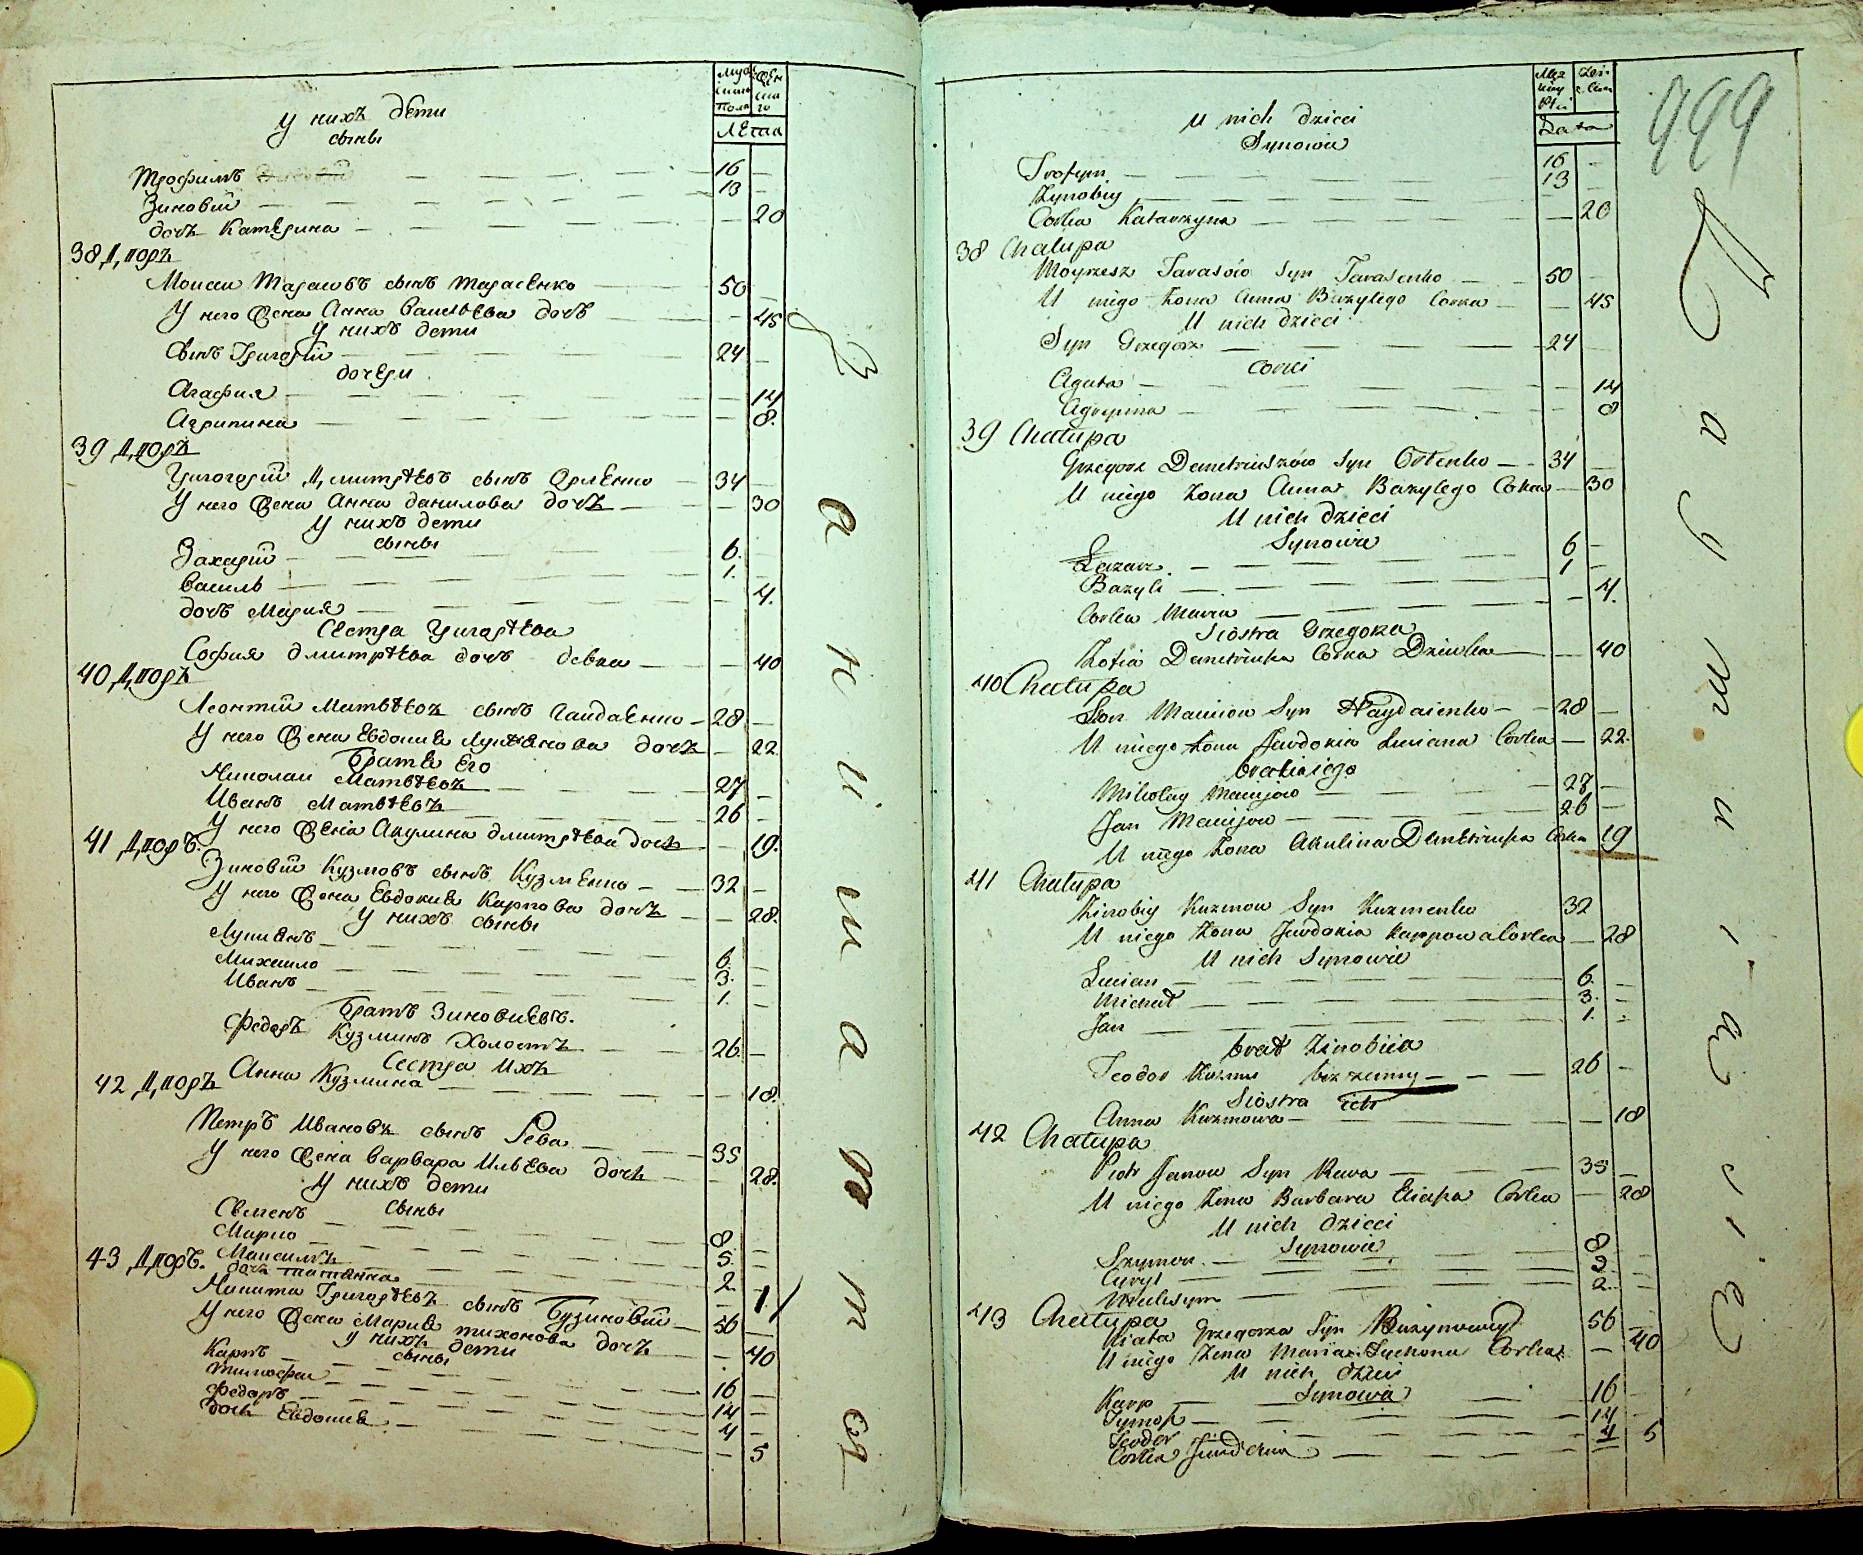 Муж
ска
пола
жен
ска
го
Лета
У нихъ дети
сыны
Трофимъ 16
Зиновій 13
дочь Катерина 20
38 дворъ
Моисеи Тарасовъ сынъ Тарасенко 50
У него жена Анна васильева дочь 45
У нихъ дети
Сынъ Григорій 24
дочери
Агафия 14
Агрипина 8.
39 дворъ
Григорій Дмитрѣевъ сынъ Орленко 34
У него жена Анна данилова дочь 30
У нихъ дети
сыны
Захарій 6.
василь 1.
дочь Мария 4.
Сестра Григорѣева
София дмитрѣева дочь девка 40
40 дворъ
Леонтій Матвѣевъ сынъ Гаидаенко 28
У него жена Евдокия Лукѣянова дочь 22
Братя его
Николаи Матвѣевъ 27
Иванъ Матвѣевъ 26
У него жена Акулина дмитрѣева дочь 19.
41 дворъ.
Зиновій Кузмовъ сынъ Кузменко 32
У него жена Евдокия Карпова дочь 28.
У нихъ сыны
Лукиянъ 6.
Михаило 3.
Иванъ 1.
Братъ Зиновиевъ.
Федоръ Кузминъ Холостъ 26.
Сестра Ихъ
Анна Кузмина 18.
42 дворъ
Петръ Ивановъ сынъ Рева 35
У него жена варвара Ильева дочь 28.
У нихъ дети
сыны
Семенъ 8
Марко 5.
Максимъ 2
дочь татѣянна 1/
43 дворъ.
Никита Григорѣевъ сынъ Бузиновій 56
У него жена Мария тихонова дочь 40
У нихъ дети
сыны
Карпъ 16
тимофеи 14
Федоръ 4
дочь Евдокия 5
з а н и м а т т ся
449
Męz
kiny
Płci
Zeń
s. kim
Lata
U nich dzieci
Synowie
Trofym 16
Zynobiy 13
Corka Katarzyna 20
38 Chalupa
Moyzesz Tarasów Syn Tarasenko 50
U niego Zona Anna Bazylego Corka 45
U nich dzieci
Syn Grzegorz 24
Corki
Agata 14
Agrypina 8
39 Chalupa
Grzegorz Demetriuszów Syn Orlenko 34
U niego Zona Anna Bazylego Corka 30
U nich dzieci
Synowie
Lazarz 6
Bazyli 1
Corka Maria 4.
Siostra Grzegorza
Zofia Demetriusza Corka Dziewka 40
40 Chalupa
Leon Maciiow Syn Haydaienko 28
U niego Zona Jewdokia Luciana Corka 22.
bracia iego
Mikolay Maciiow 27
Jan Maciiow 26
U niego Zona Akulina Demetriusza Corka 19
41 Chalupa
Zinobiy Kuzmow Syn Kuzmenko 32
U niego Zona Jewdokia Karpowa Corka 28
U nich Synowie
Lucian 6.
Michał 3.
Jan 1.
brat Zinobiia
Teodor Kuzmin bezzenny 26
Siostra ich
Anna Kuzmowa 18
42 Chalupa
Piotr Janow Syn Rewa 35
U niego Zona Barbara Eliasza Corka 28
U nich dzieci
Synowie
Szymon 8
Cyryl 5
Maksym 2
43 Chalupa
Kiata Grzegorza Syn Buzynowy 56
U niego Zona Maria Tychona Corka 40
U nich dzieci
Synowie
Karp 16
Tymof 14
Teodor 4
Corka 5
Z a y m u i ą s i ę